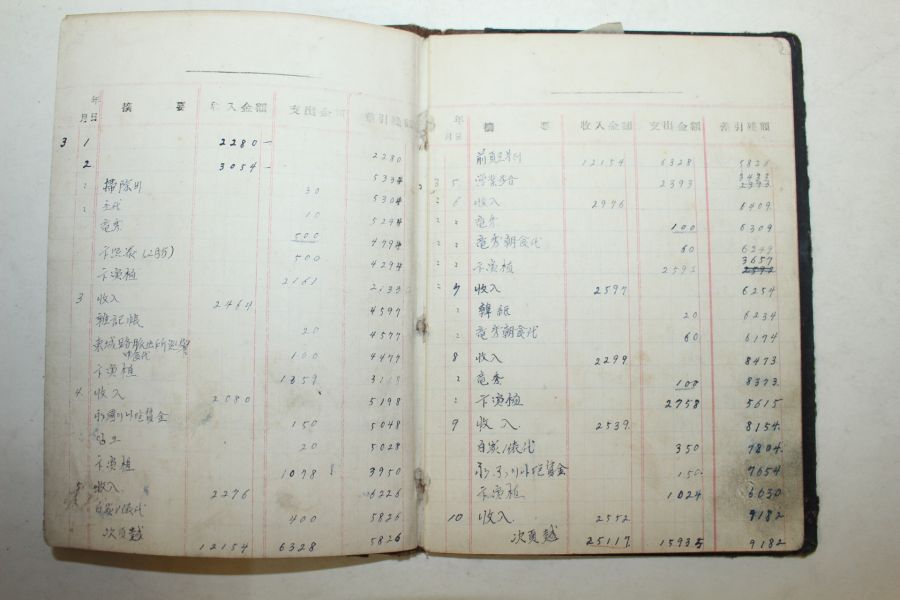 年
月日 摘 要 收入金額 支出金額 差引殘額
3 1 2280— 2280
2 3054— 5334
〃 掃除 30 5304
〃 10 5294
竜秀 500 4794
500 4294
卞演植 2161 2133
3 收入 2464 4597
雜記帳 20 4577
100 4477
卞演植 1359 3118
4 收入 2080 5198
150 5048
20 5028
卞演植 1078 3950
5 收入 2276 6226
白炭1俵代 400 5826
次頁越 12154 6328 5826
年
月日 摘 要 收入金額 支出金額 差引殘額
前頁 12154 6328 5826
3 5 2393 3433 2393
〃 6 收入 2976 6409
〃 〃 竜秀 100 6309
〃 〃 竜秀朝食代 60 6249
〃 〃 卞演植 2592 3657 2592
〃 7 收入 2597 6254
〃 韓紙 20 6234
〃 竜秀朝食代 60 6174
8 收入 2299 8473
〃 竜秀 100 8373
〃 卞演植 2758 5615
9 收入 2539 8154
白炭1俵代 350 7804
150 7654
卞演植 1024 6630
10 收入 2552 9182
次頁越 25117 15935 9182